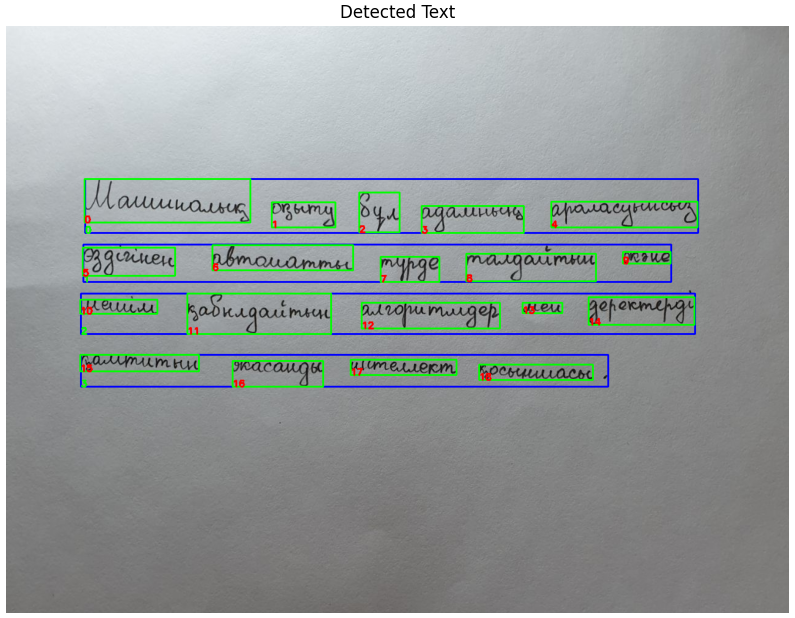 Detected Text
Машиналық оқыту бұл адамның араласуынсыз
өздігінен автоматты түрде талдайтын және
шешім қабылдайтын алгоритмдер мен деректерді
қамтитын жасанды интеллект қосыншасы.